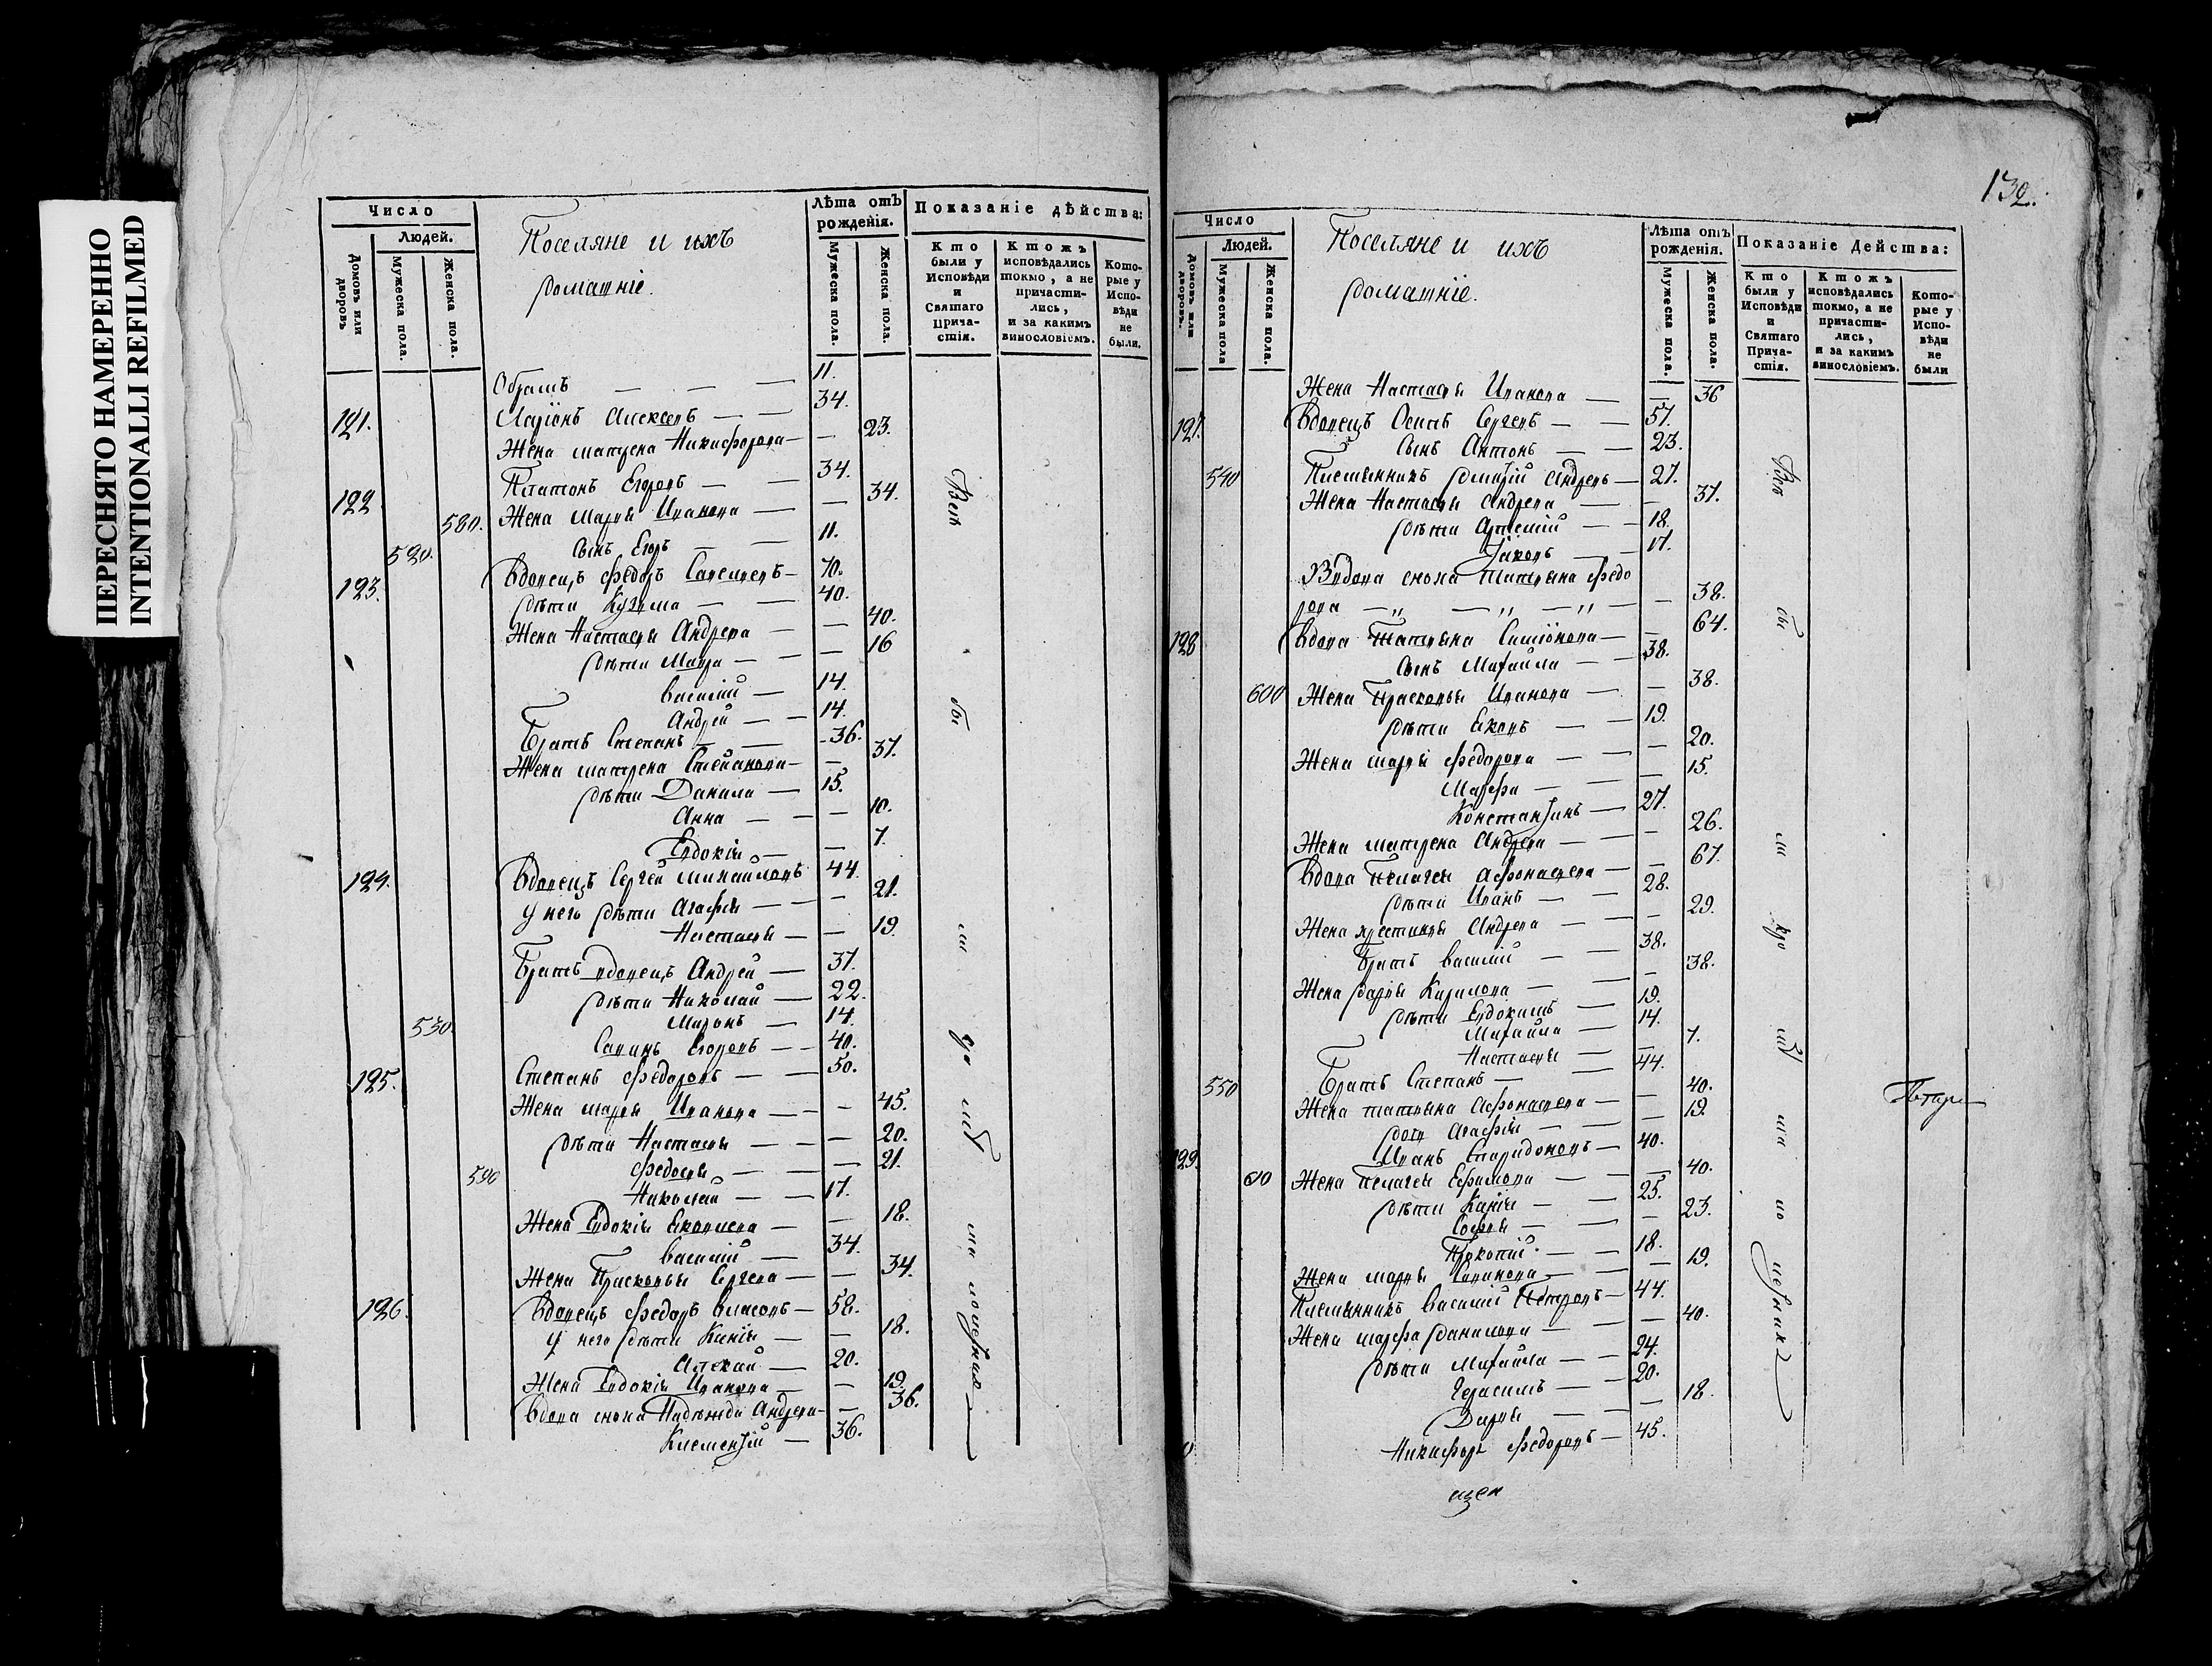 ПЕРЕСНЯТО НАМЕРЕННО
INTENTIONALLI REFILMED
Число
Людей.
Домовъ или дворовъ
Мужеска пола.
Женска пола.
Поселяне и ихъ
домашніе.
Лѣта отъ рожденія.
Мужеска пола.
Женска пола.
Показаніе дѣйства:
Кто были у Исповѣди и Святаго Прича-стія.
Ктожъ исповѣдались токмо, а не причасти-лись, и за какимъ винословіемъ.
Кото-рые у Испо-вѣди не были.
Абрамъ — — — 11.
121. Ларіонъ Алексевъ — — 34.
Жена матрена Никифорова — — 23.
122 Платонъ Егоровъ — — 34.
580. Жена марья Иванова — — 34.
520. сынъ Егоръ — — 11.
123. Вдовецъ федоръ Савельевъ — 70.
дѣти Кузьма — — 40.
Жена Настасья Андрева — — 40.
дѣти Мавра — — — 16
василий — 14.
Андрей — — 14.
Братъ Степанъ — — 36.
Жена матрена Степанова — — 37.
дѣти Данила — 15.
Анна — — — 10.
Евдокія — — 7.
124. Вдовецъ Сергей михайловъ 44.
у него дѣти Агафья — — — 21.
Настасья — — 19.
Братъ вдовецъ Андрей — 37.
дѣти Николай — 22.
530. Миронъ — 14.
Савинъ Егоровъ — — 40.
125. Степанъ федоровъ — — 50.
Жена марья Иванова — — — 45.
дѣти Настасья — — — 20.
федосья — — — 21.
590 Николай — — 17.
Жена Евдокія Яковлева — — 18.
василий — 34.
Жена Прасковья Сергева — — 34.
126. Вдовецъ федоръ власовъ — 58.
У него дѣти Ксенія — — 18.
Алексай — 20.
Жена Евдокія Иванова — — 19.
Вдова сноха Надѣжда Андрева — — 36.
Клементій — 36.
Всѣ бы ли
132.
Число
Людей.
Домовъ или дворовъ.
Мужеска пола
Женска пола.
Поселяне и ихъ
домашніе.
Лѣта отъ рожденія.
Мужеска пола.
Женска пола.
Показаніе Действа:
Кто были у Исповѣди и Святаго Прича-стія.
Ктожъ исповѣдались токмо, а не причасти-лись, и за какимъ винословіемъ.
Кото-рые у Испо-вѣди не были
Жена Настасья Иванова — — 36
127. Вдовецъ Осипъ Сергевъ — — 57.
сынъ Антонъ — — 23.
540 Племянникъ дмитрій Андревъ — 27.
Жена Настасья Андрева — — 37.
дѣти Артемій — — 18.
Яковъ — — 17.
Вдова сноха татьяна федо
рова — „ — „ — „ — — 38.
128 Вдова татьяна Симіонова — — 64.
сынъ Михайла — — 38.
600 Жена Прасковья Иванова — — 38.
дѣти Яковъ — — 19.
Жена марья федорова — — — 20.
Марфа — — — 15.
Константинъ — 27.
Жена матрена Андрева — — — 26.
Вдова Пелагея Афонасьева — — 67.
дѣти Иванъ — — 28.
Жена христинья Андрева — — — 29.
Братъ василий — — 38.
Жена дарья Кирилова — — — 38.
дѣти Евдокимъ — 19.
Михайла — 14.
Настасья — — 7.
550 Братъ Степанъ — — 44.
Жена татьяна Афонасьева — — 40.
дочь Агафья — — — 19.
129. Иванъ Спиридоновъ — 40.
610 Жена Пелагея Ефимова — — — 40.
дѣти — — 25.
Софья — — — 23.
Прокопій — — 18.
Жена марья Савинова — — — 19.
Племянникъ василий Петровъ — 44.
Жена марфа данилова — — — 40.
дѣти Михайла — — 24.
Герасимъ — — 20.
Дарья — — — 18.
Никифоръ федоровъ — 45.
Всѣ бы ли